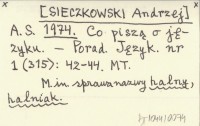 [SIECZKOWSKI Andrzej]
A.S. 1974. Co piszą o ję-
zyku. – Porad. Język. nr
1 (315): 42-44. MT.
M.in. sprawa nazwy halny,
halniak.